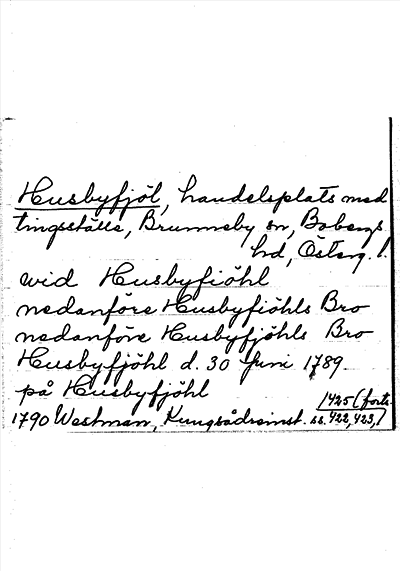 Husbyfjöl, handelsplats med
tingsställe, Brunneby sn, Bobergs
hrd, Österg. l.
wid Husbyfiöhl
nedanföre Husbyfiöhls Bro
nedanföre Husbyfjöhls Bro
Husbyfjöhl d. 30 Juni 1789.
på Husbyfjöhl
1425 (forts.
1790 Westman, Kungsådreinst. ss. 422, 423,)